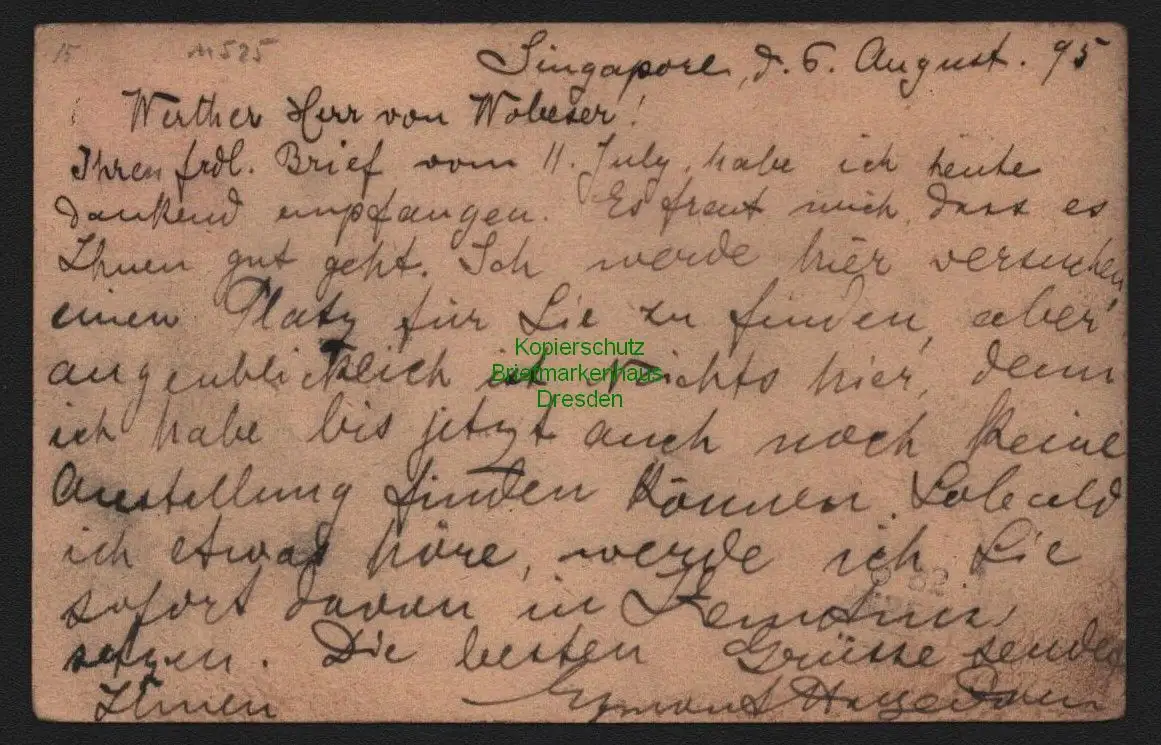 15 11525
Singapore, d. 6. August. 95
Werther Herr von Wobeser!
Ihren frdl. Brief vom 11. July, habe ich heute
dankend empfangen. Es freut mich, dass es
Ihnen gut geht. Ich werde hier versuchen,
einen Platz für Sie zu finden, aber
augenblicklich ist Nichts hier, denn
ich habe bis jetzt auch noch keine
Anstellung finden können. Sobald
ich etwas höre, werde ich Sie
sofort davon in Kenntnis
setzen. Die besten Grüsse sendet
Ihnen Egmont Hagedorn
Kopierschutz
Briefmarkenhaus
Dresden